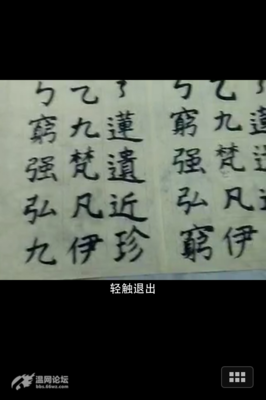 乙九梵凡伊
ㄅ窮强弘窮
蓮遺近珍
乙九梵凡伊
ㄅ窮强弘九
轻触退出
温网论坛
bbs.66wz.com